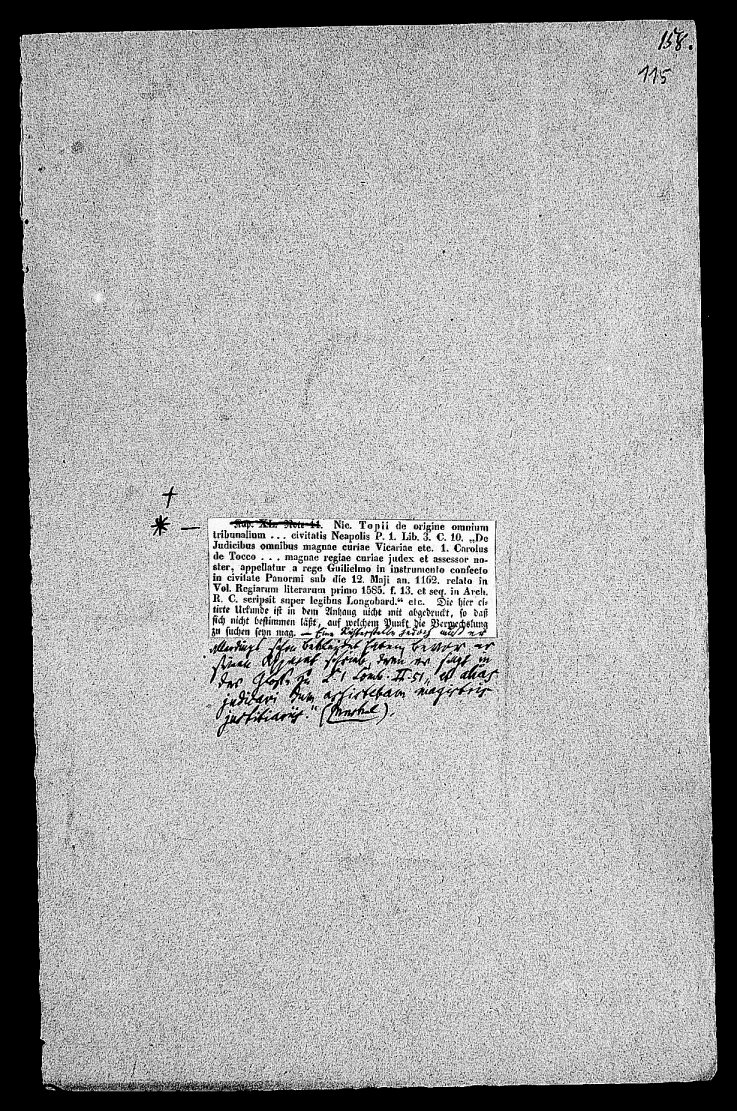 158.
115
+
* —
Kap. XL. Note 44. Nic. Topii de origine omnium
tribunalium ... civitatis Neapolis P. 1. Lib. 3. C. 10. „De
Judicibus omnibus magnae curiae Vicariae etc. 1. Carolus
de Tocco ... magnae regiae curiae judex et assessor no-
ster, appellatur a rege Guilielmo in instrumento confecto
in civitate Panormi sub die 12. Maji an. 1162. relato in
Vol. Regiarum literarum primo 1585. f. 13. et seq. in Arch.
R. C. scripsit super legibus Longobard.“ etc. Die hier ci-
tirte Urkunde ist in dem Anhang nicht mit abgedruckt, so daß
sich nicht bestimmen läßt, auf welchem Punkt die Verwechslung
zu suchen seyn mag. — Eine Richterstelle jedoch muß er
allerdings schon bekleidet haben bevor er
seinen Apparat schrieb, denn er sagt in
der Glosse zu L. 1 Lomb. II. 51 „et alias
judicavi dum assistebam magistris
justitiariis.“ (Merkel).